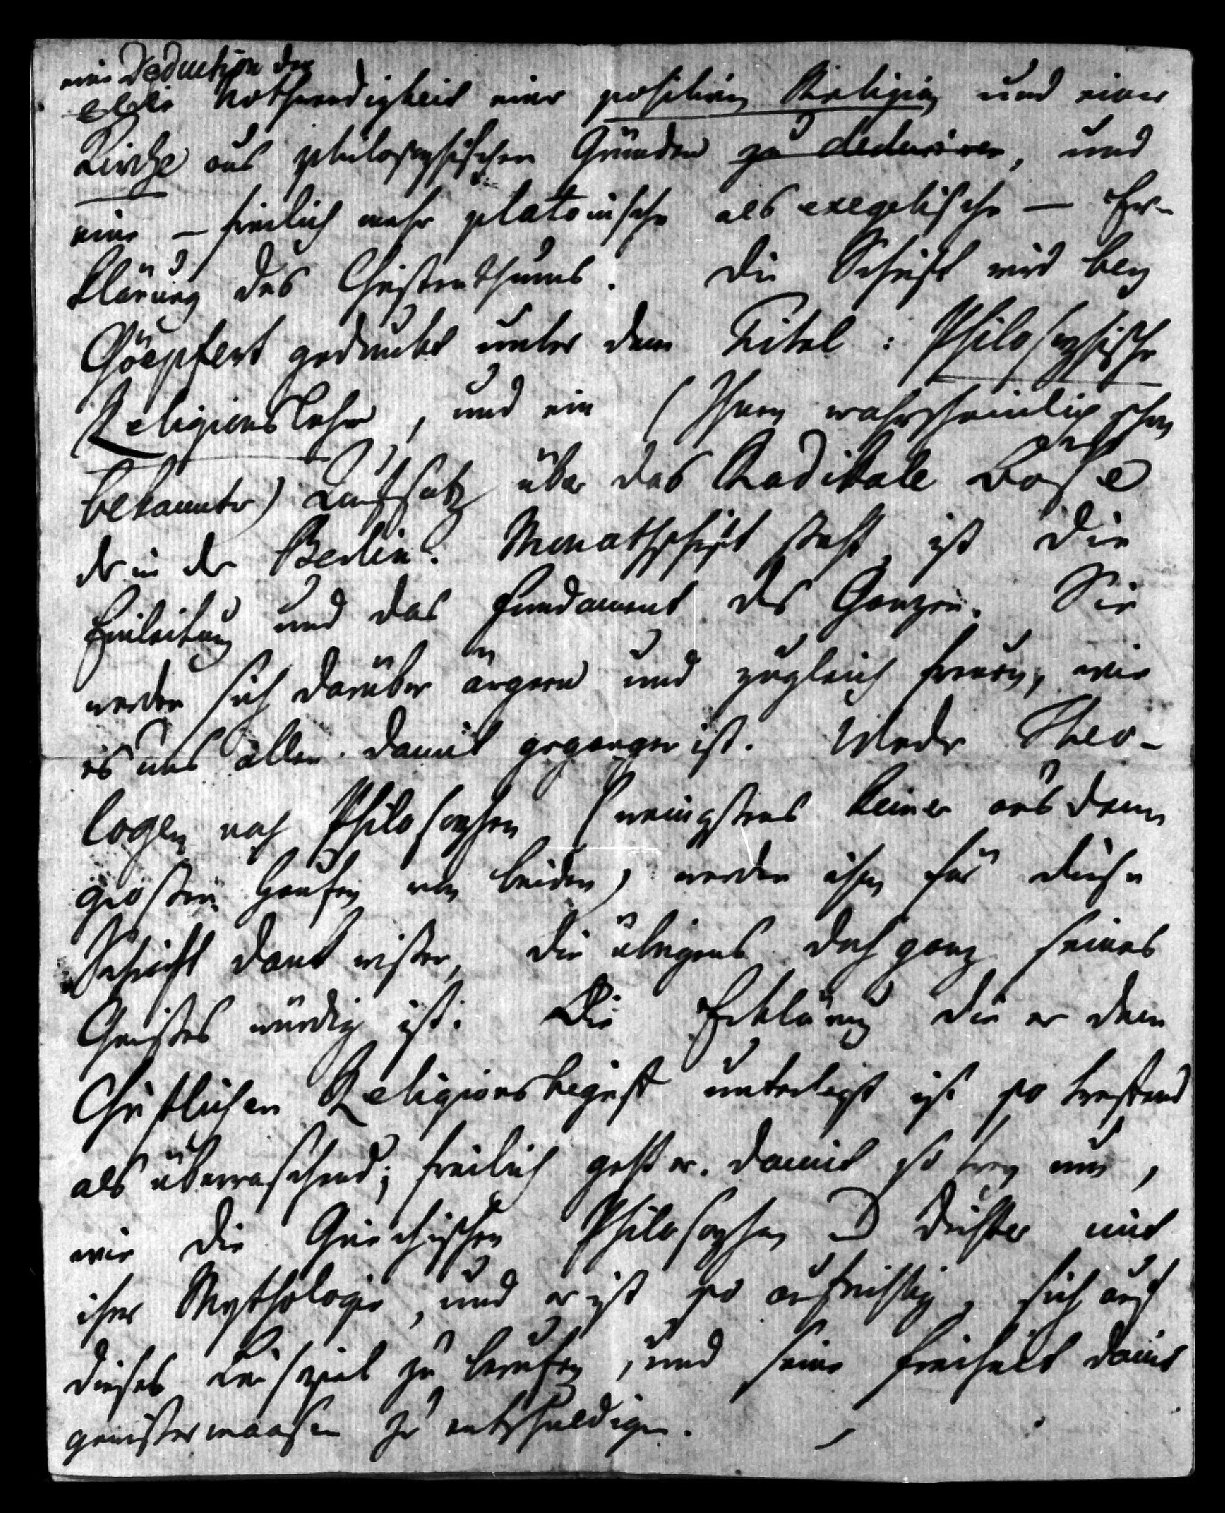 eine Deduction der
Nothwendigkeit einer positiven Religion und einer
Kirche aus philosophischen Gründen zu deduciren, und
eine – freilich mehr platonische als exegetische – Er-
klärung des Christenthums. Die Schrift wird bey
Göepfert gedruckt unter dem Titel: Philosophische
Religionslehre, und ein (Ihnen wahrscheinlich schon
bekannter) Aufsatz über das Radikale Böse
der in der Berlin. Monathschrift steht, ist die
Einleitung und das Fundament des Ganzen. Sie
werden sich darüber ärgern und zugleich freuen, wie
es uns allen damit gegangen ist. Weder Theo-
logen noch Philosophen (wenigstens keiner aus dem
großen Haufen von beiden) werden ihm für diese
Schrift dank wissen, die übrigens doch ganz seines
Geistes würdig ist. Die Erklärung die er dem
Christlichen Religionsbegriff unterlegt ist so treffend
als überraschend; freilich geht er damit so frey um,
wie die Griechischen Philosophen und Dichter mit
ihrer Mythologie, und er ist so aufrichtig, sich auf
dieses Beispiel zu berufen, und seine Freiheit damit
gewissermaasen zu entschuldigen.